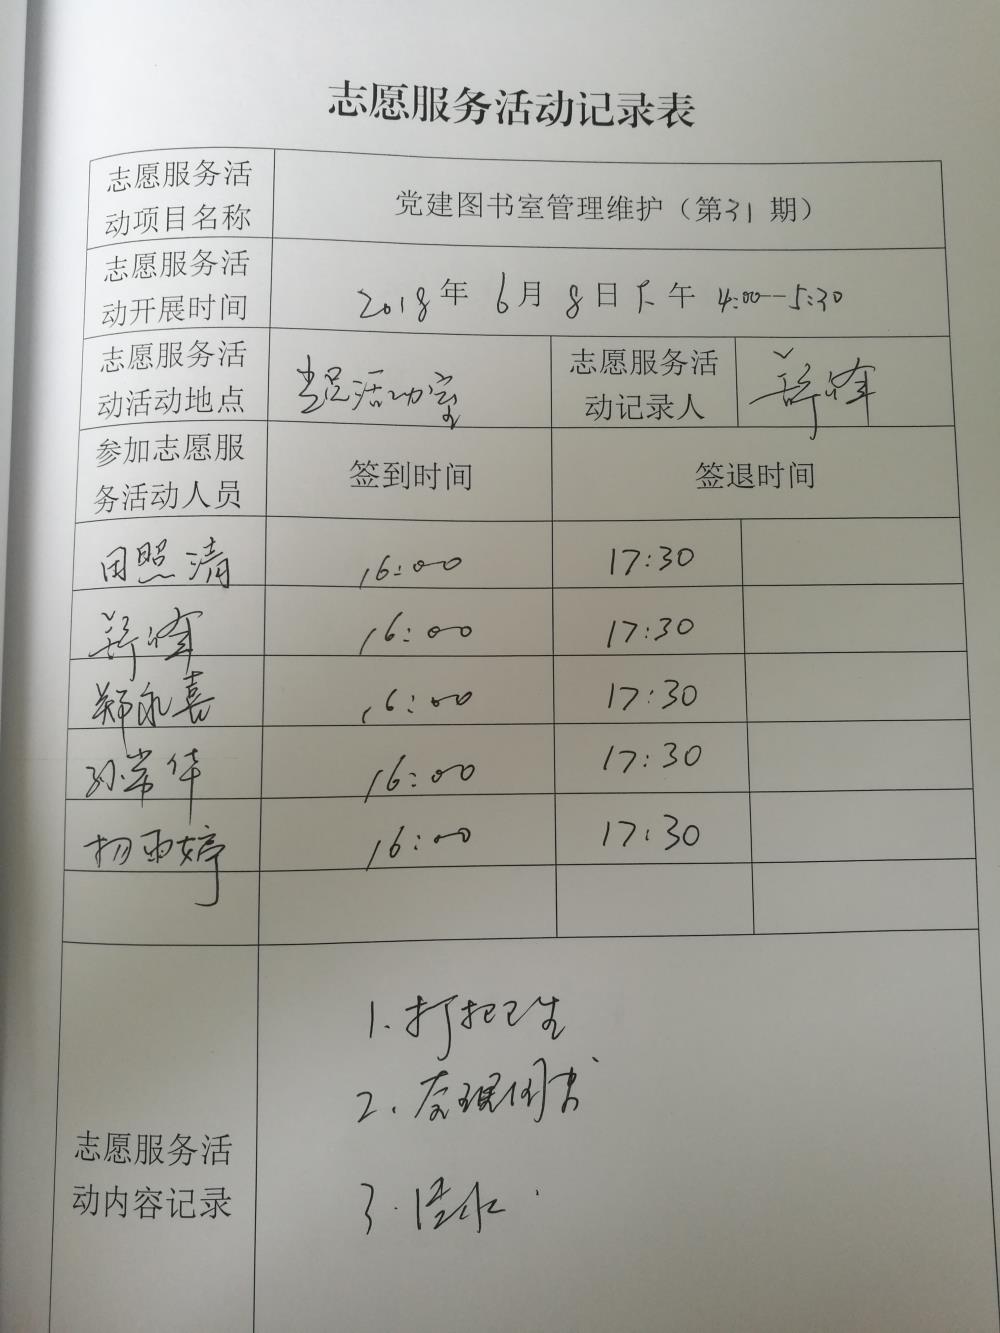 志愿服务活动记录表
志愿服务活
动项目名称
党建图书室管理维护（第31期）
志愿服务活
动开展时间
2018年 6月 8日下午 4:00--5:30
志愿服务活
动活动地点
党员活动室
志愿服务活
动记录人
参加志愿服
务活动人员
签到时间
签退时间
田照清 16:00 17:30
16:00 17:30
郑永喜 16:00 17:30
孙常华 16:00 17:30
杨雨婷 16:00 17:30
志愿服务活
动内容记录
1.打扫卫生
2.整理图书
3.浇水.